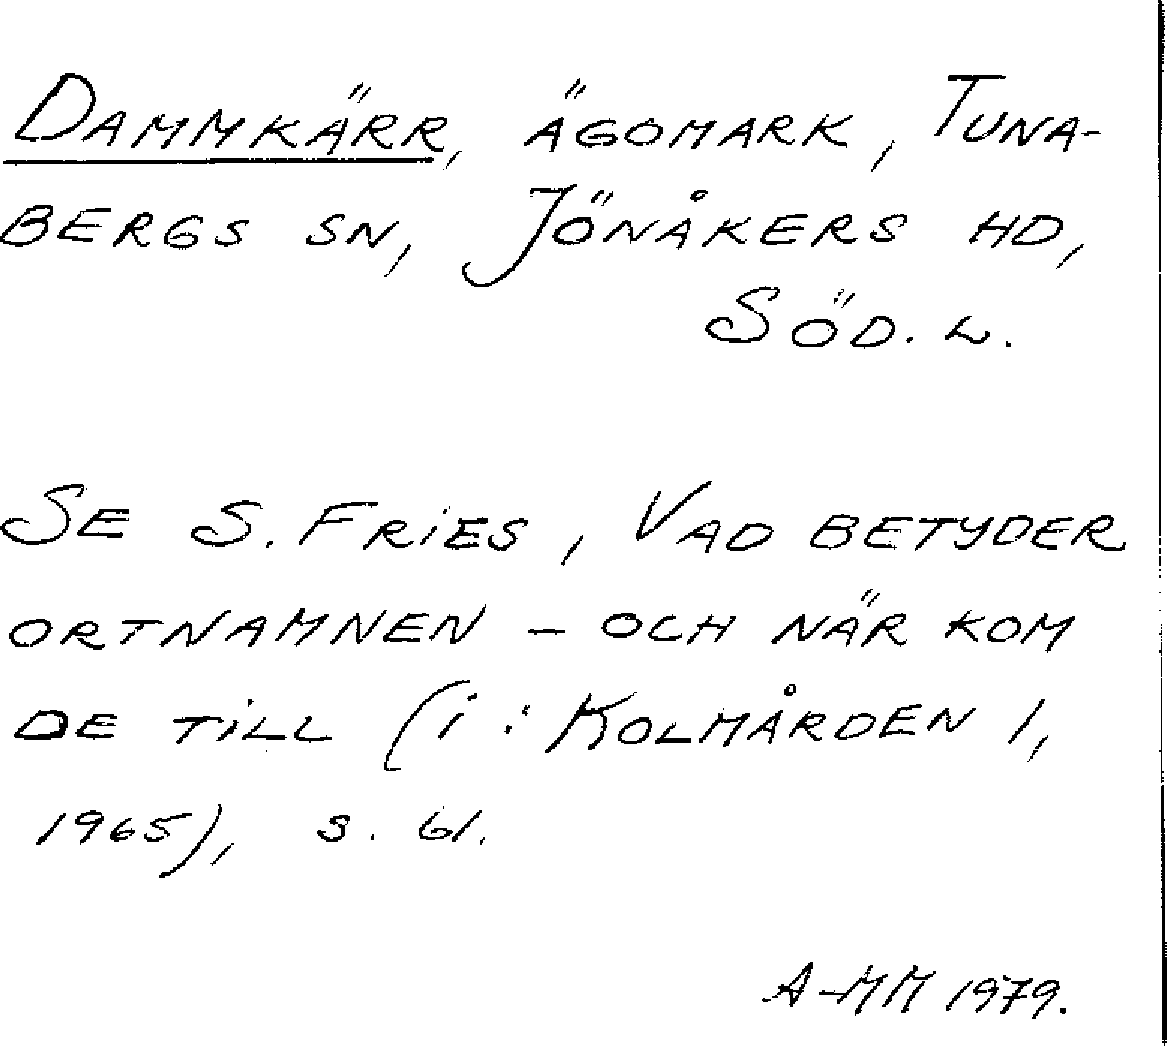 DAMMKÄRR, ÄGOMARK, TUNA-
BERGS SN, JÖNÅKERS HD,
SÖD. L.
SE S. FRIES, VAD BETYDER
ORTNAMNEN – OCH NÄR KOM
DE TILL (i: KOLMÅRDEN 1,
1965), s. 61.
A-MM 1979.